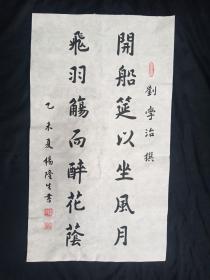 劉學治撰
開船筵以坐風月
飛羽觴而醉花蔭
乙未夏楊隆生書